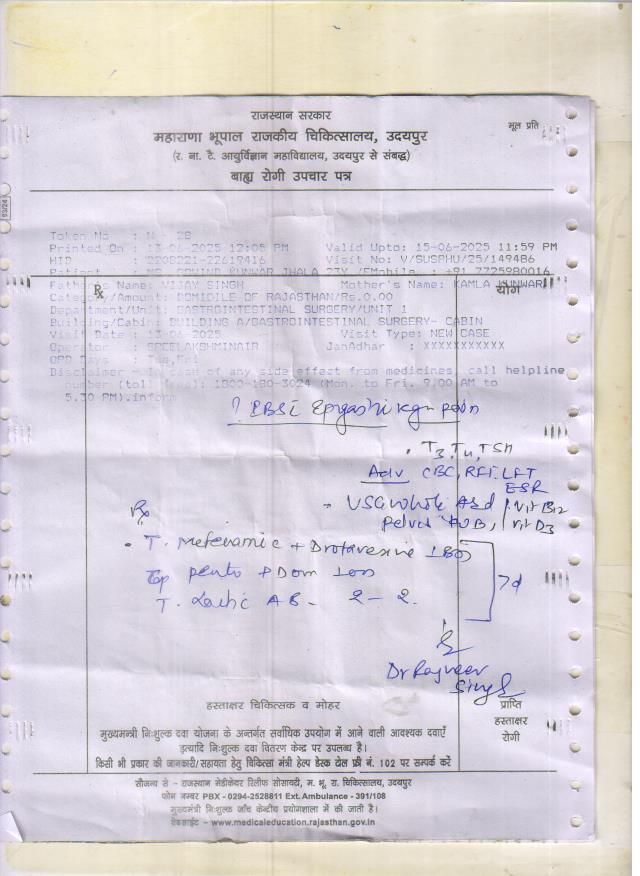 राजस्थान सरकार
मूल प्रति
महाराणा भूपाल राजकीय चिकित्सालय, उदयपुर
(र. ना. टै. आयुर्विज्ञान महाविद्यालय, उदयपुर से संबद्ध)
बाह्य रोगी उपचार पत्र
Token No : N - 28
Printed On : 13-06-2025 12:05 PM Valid Upto: 15-06-2025 11:59 PM
HID : Visit No: V/SUSPHU/25/149486
Patient : MS. GOVIND KUNWAR JHALA 23Y /F Mobile : +91 7725980016
Fathers Name: VIJAY SINGH Mother's Name: KAMLA KUNWAR
℞ योग
Category/Amount: DOMICILE OF RAJASTHAN/Rs.0.00
Department/Unit: GASTROINTESTINAL SURGERY/UNIT 1
Building/Cabin: BUILDING A/GASTROINTESTINAL SURGERY- CABIN
Visit Date : 13-06-2025 Visit Type: NEW CASE
Operator : SREELAKSHMINAIR JanAdhar : XXXXXXXXXXX
OPD Days : Tue,Fri
Disclaimer - In case of any side effect from medicines, call helpline
number (toll free): 1800-180-3024 (Mon. to Fri. 9.00 AM to
5.30 PM).inform
? pain
T3, T4, TSH
Adv CBC, RFT, LFT
ESR
- USG whole Abd / Vit B12
Pelvis KUB, / Vit D3
Rx
• T. Mefenamic + Drotaverine 1 BD
Cap Panto + Dom 1 OD
T. AB - 2 - 2 7d
Dr Rajveer
Singh
हस्ताक्षर चिकित्सक व मोहर
प्राप्ति
हस्ताक्षर
रोगी
मुख्यमन्त्री निःशुल्क दवा योजना के अन्तर्गत सर्वाधिक उपयोग में आने वाली आवश्यक दवाएँ
इत्यादि निःशुल्क दवा वितरण केन्द्र पर उपलब्ध है।
किसी भी प्रकार की जानकारी/सहायता हेतु चिकित्सा मंत्री हेल्प डेस्क टोल फ्री नं. 102 पर सम्पर्क करें
सौजन्य से - राजस्थान मेडीकेयर रिलीफ सोसायटी, म. भू. रा. चिकित्सालय, उदयपुर
फोन नम्बर PBX - 0294-2528811 Ext. Ambulance - 391/108
मुख्यमंत्री निःशुल्क जाँच केन्द्रीय प्रयोगशाला में की जाती है।
वेबसाईट - www.medicaleducation.rajasthan.gov.in